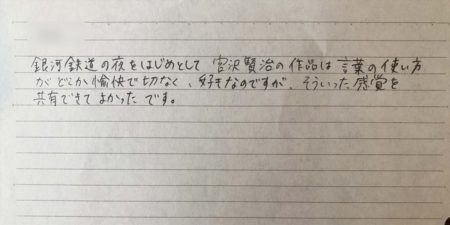 銀河鉄道の夜をはじめとして 宮沢賢治の作品は 言葉の使い方
がどこか愉快で切なく、好きなのですが、そういった感覚を
共有できて よかったです。